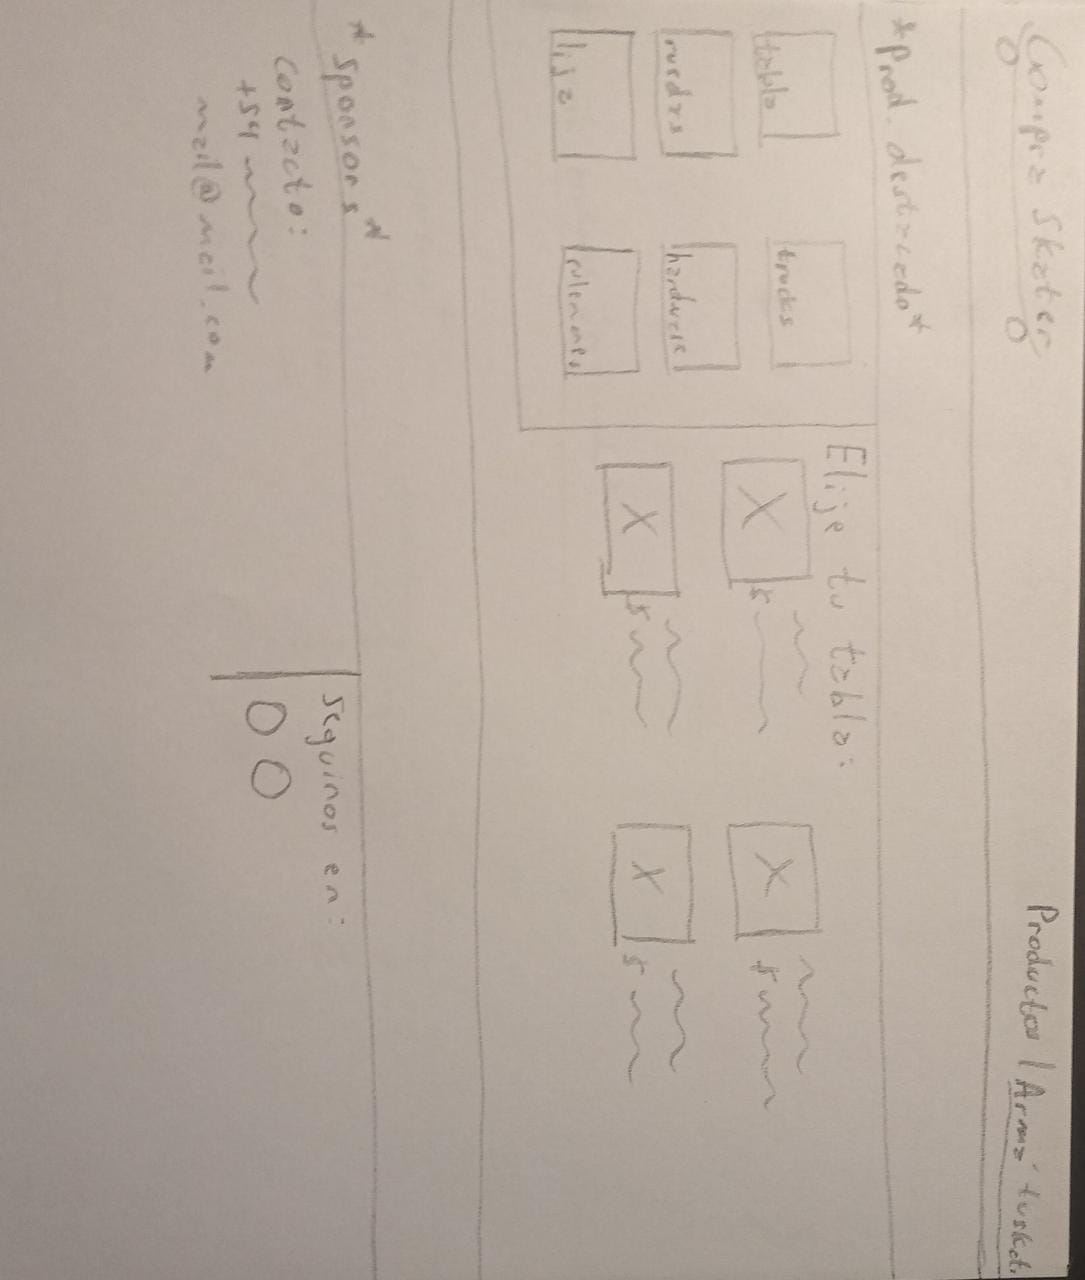 Compra Skater
Productos | Armá tu skate
*Prod. destacado*
tabla
trucks
ruedas
hardware
lija
rulemanes
Elije tu tabla:
X
$
X
$
X
$
X
$
*Sponsors*
Contacto:
+54
mail@mail.com
Seguinos en: